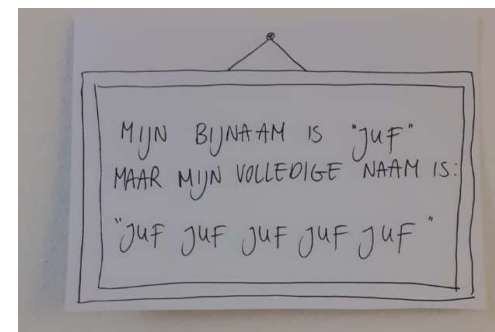 MIJN BIJNAAM IS "JUF"
MAAR MIJN VOLLEDIGE NAAM IS:
"JUF JUF JUF JUF JUF"